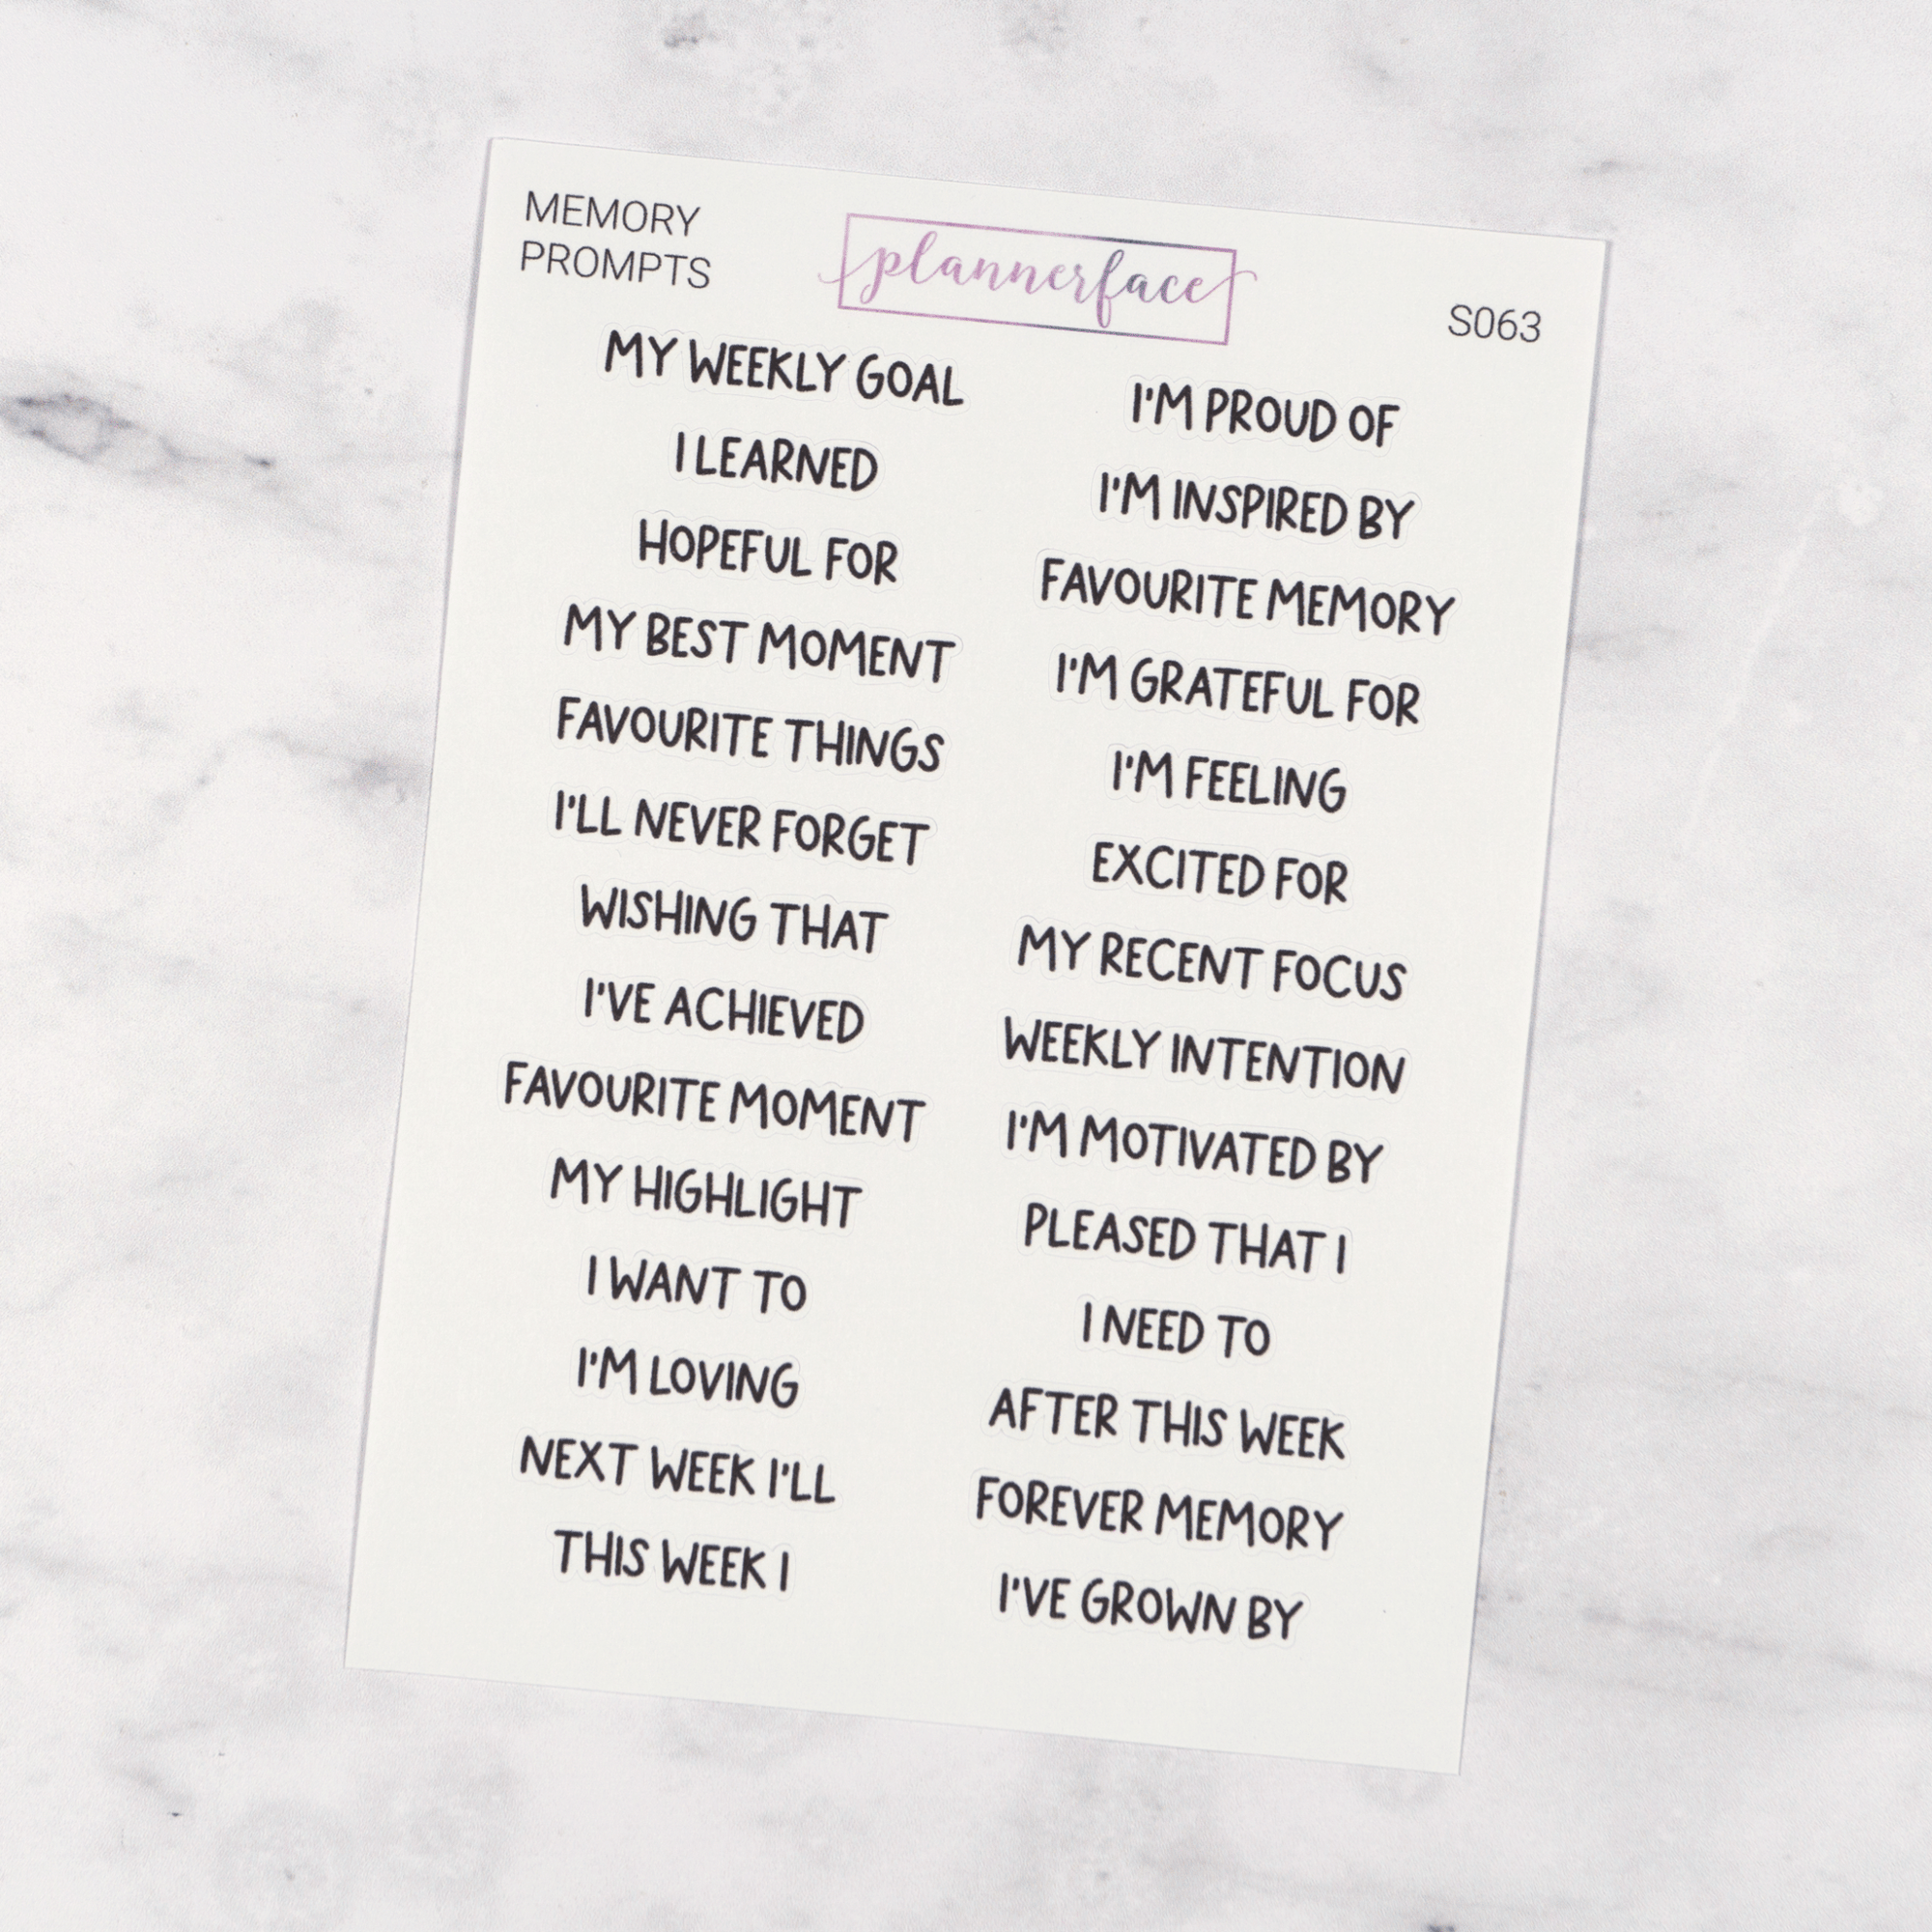 MEMORY
PROMPTS
plannerface
S063
MY WEEKLY GOAL
I LEARNED
HOPEFUL FOR
MY BEST MOMENT
FAVOURITE THINGS
I'LL NEVER FORGET
WISHING THAT
I'VE ACHIEVED
FAVOURITE MOMENT
MY HIGHLIGHT
I WANT TO
I'M LOVING
NEXT WEEK I'LL
THIS WEEK I
I'M PROUD OF
I'M INSPIRED BY
FAVOURITE MEMORY
I'M GRATEFUL FOR
I'M FEELING
EXCITED FOR
MY RECENT FOCUS
WEEKLY INTENTION
I'M MOTIVATED BY
PLEASED THAT I
I NEED TO
AFTER THIS WEEK
FOREVER MEMORY
I'VE GROWN BY